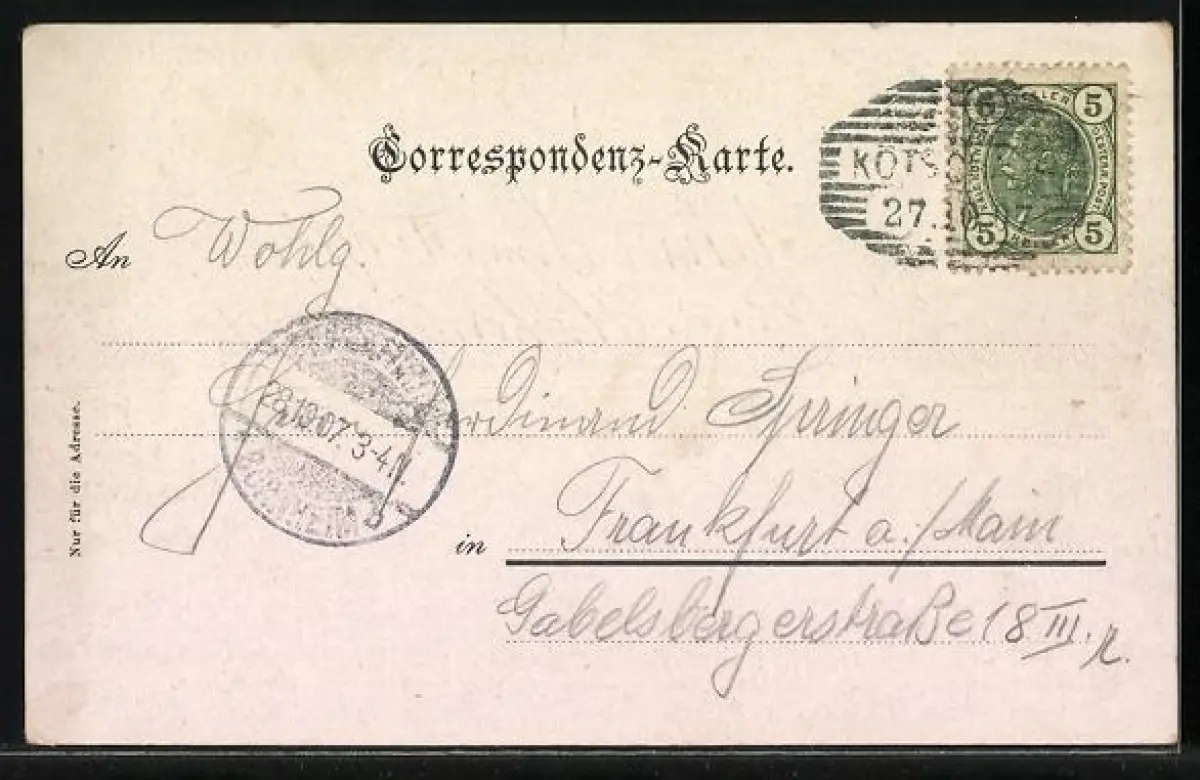 Correspondenz-Karte.
5 HELLER 5
5 HELLER 5
KÖTSC
27.
An Wohlg.
Ferdinand Springer
28.10.07. 3-4 N.
BORNHEIM
in Frankfurt a./Main
Gabelsbergerstraße 18 III. r.
Nur für die Adresse.